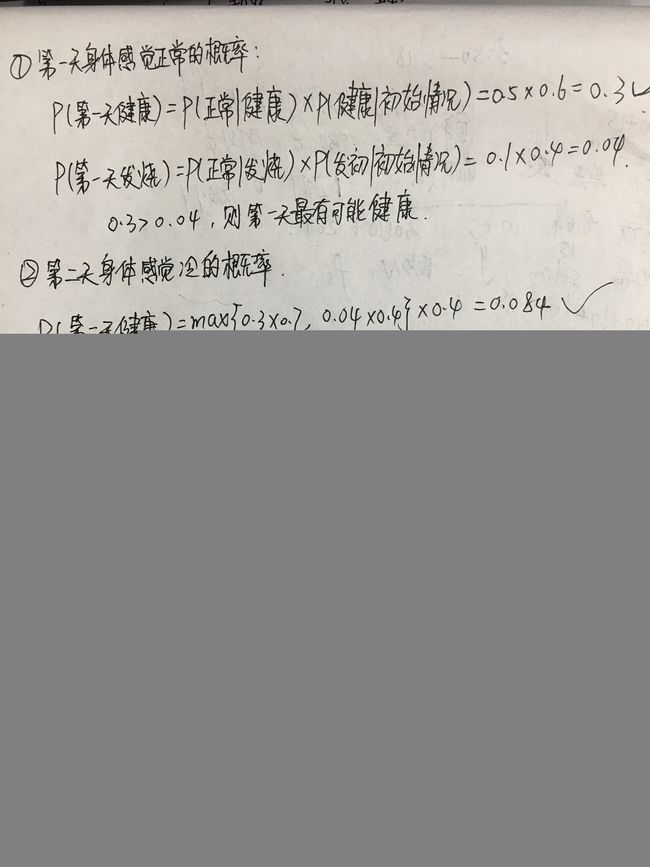 ① 第一天身体感觉正常的概率:
P(第一天健康)=P(正常|健康)×P(健康|初始情况)=0.5×0.6=0.3✓
P(第一天发烧)=P(正常|发烧)×P(发初|初始情况)=0.1×0.4=0.04.
0.3>0.04,则第一天最有可能健康.
② 第二天身体感觉冷的概率.
=max{0.3×0.7, 0.04×0.4}×0.4=0.084 ✓